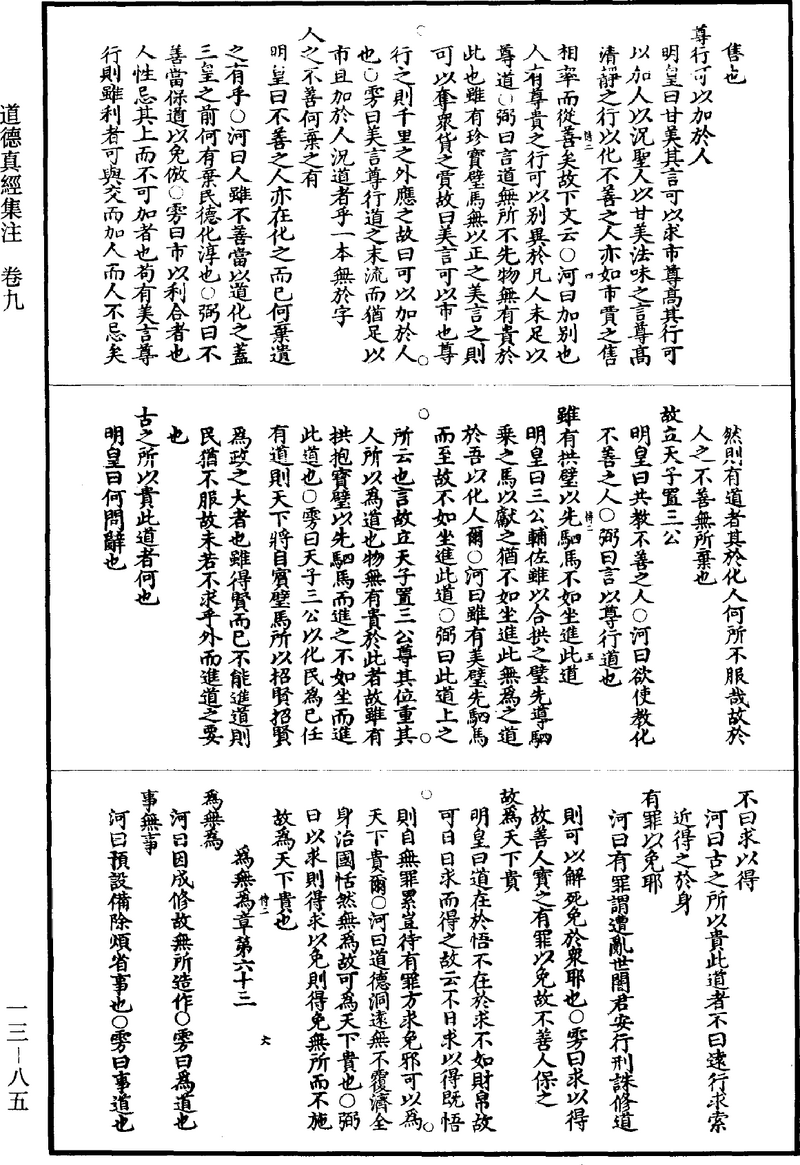 道德真經集注　卷九
一三－八五
售也
尊行可以加於人
明皇曰甘美其言可以求市尊高其行可
以加人以況聖人以甘美法味之言尊高
清靜之行以化不善之人亦如市賈之售
相率而從善矣故下文云○河曰加别也
人有尊貴之行可以别異於凡人未足以
尊道○弼曰言道無所不先物無有貴於
此也雖有珍寶璧馬無以正之美言之則
可以奪衆貨之賈故曰美言可以市也尊
行之則千里之外應之故曰可以加於人
也○雱曰美言尊行道之末流而猶足以
市且加於人況道者乎一本無於字
人之不善何棄之有
明皇曰不善之人亦在化之而已何棄遺
之有乎○河曰人雖不善當以道化之蓋
三皇之前何有棄民德化淳也○弼曰不
善當保道以免倣○雱曰市以利合者也
人性忌其上而不可加者也苟有美言尊
行則雖利者可與交而加人而人不忌矣
然則有道者其於化人何所不服哉故於
人之不善無所棄也
故立天子置三公
明皇曰共教不善之人○河曰欲使教化
不善之人○弼曰言以尊行道也
雖有拱璧以先駟馬不如坐進此道
明皇曰三公輔佐雖以合拱之璧先導駟
乘之馬以獻之猶不如坐進此無為之道
於吾以化人爾○河曰雖有美璧先駟馬
而至故不如坐進此道○弼曰此道上之
所云也言故立天子置三公尊其位重其
人所以為道也物無有貴於此者故雖有
拱抱寶璧以先駟馬而進之不如坐而進
此道也○雱曰天子三公以化民為已任
有道則天下將自賓璧馬所以招賢招賢
為政之大者也雖得賢而已不能進道則
民猶不服故未若不求乎外而進道之要
也
古之所以貴此道者何也
明皇曰何問辭也
不曰求以得
河曰古之所以貴此道者不曰遠行求索
近得之於身
有罪以免耶
河曰有罪謂遭亂世闇君妄行刑誅修道
則可以解死免於衆耶也○雱曰求以得
故善人寳之有罪以免故不善人保之
故為天下貴
明皇曰道在於悟不在於求不如財帛故
可日日求而得之故云不日求以得既悟
則自無罪累豈待有罪方求免邪可以為
天下貴爾○河曰道德洞遠無不覆濟全
身治國恬然無為故可為天下貴也○弼
曰以求則得求以免則得免無所而不施
故為天下貴也
為無為章第六十三
為無為
河曰因成修故無所造作○雱曰為道也
事無事
河曰預設備除煩省事也○雱曰事道也